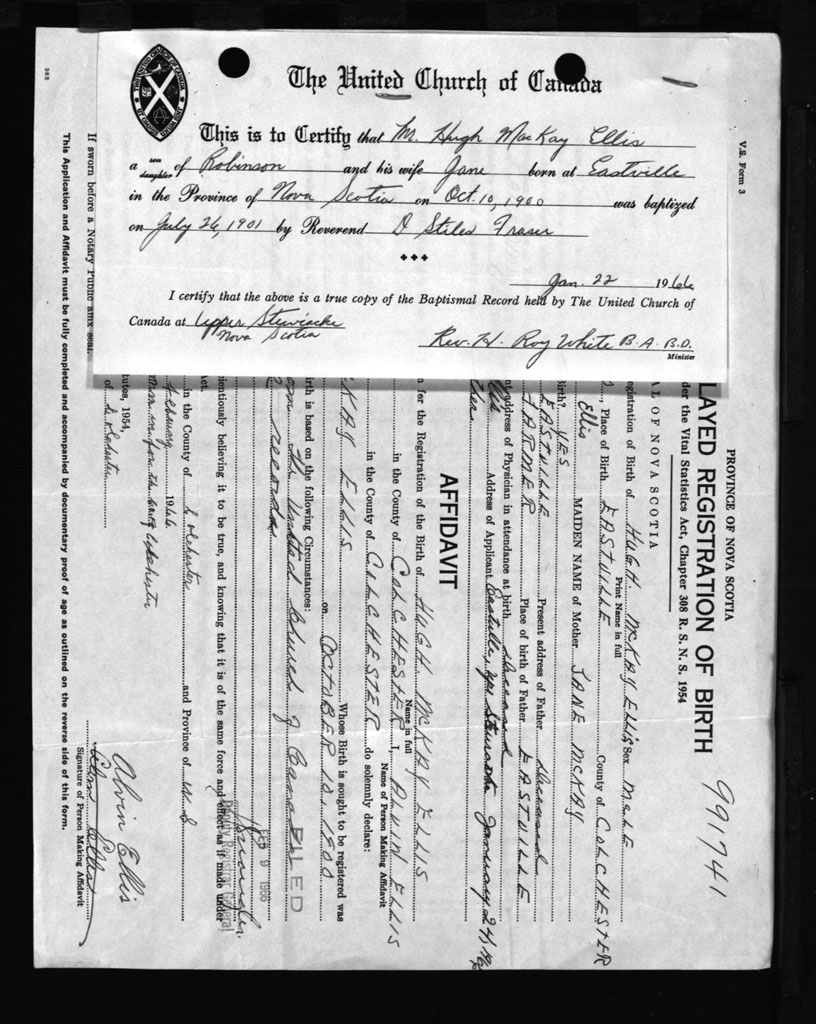 The United Church of Canada
This is to Certify that M. Hugh MacKay Ellis
a son daughter of Robinson and his wife Jane born at Eastville
in the Province of Nova Scotia on Oct. 10, 1900 was baptized
on July 26, 1901 by Reverend D Stiles Fraser
Jan. 22 1966
I certify that the above is a true copy of the Baptismal Record held by The United Church of
Canada at Upper Stewiacke
Nova Scotia
Rev. H. Roy White B.A. B.D.
Minister
V.S. Form 3
991741
PROVINCE OF NOVA SCOTIA
LAYED REGISTRATION OF BIRTH
der the Vital Statistics Act, Chapter 308 R. S. N. S. 1954
AL OF NOVA SCOTIA
egistration of Birth of HUGH McKAY ELLIS Sex MALE
Print Name in full
, Place of Birth EASTVILLE County of COLCHESTER
Ellis MAIDEN NAME of Mother JANE McKAY
Birth? YES
EASTVILLE Present address of Father deceased
FARMER Place of birth of Father EASTVILLE
address of Physician in attendance at birth deceased
Address of Applicant Eastville January 24
AFFIDAVIT
n for the Registration of the Birth of HUGH McKAY ELLIS
Name in full
in the County of COLCHESTER I, ALVIN ELLIS
Name of Person Making Affidavit
in the County of COLCHESTER do solemnly declare:
KAY ELLIS Whose Birth is sought to be registered was
on OCTOBER 10, 1900
irth is based on the following Circumstances:
the United Church of Canada
records
FILED
FEB 9 1966
Deputy Registrar General
mentiously believing it to be true, and knowing that it is of the same force and effect as if made under
Act.
in the County of Colchester and Province of N.S
February 1966
tutes, 1954,
of Colchester
Alvin Ellis
Alvin Ellis
Signature of Person Making Affidavit
If sworn before a Notary Public affix seal.
This Application and Affidavit must be fully completed and accompanied by documentary proof of age as outlined on the reverse side of this form.
385